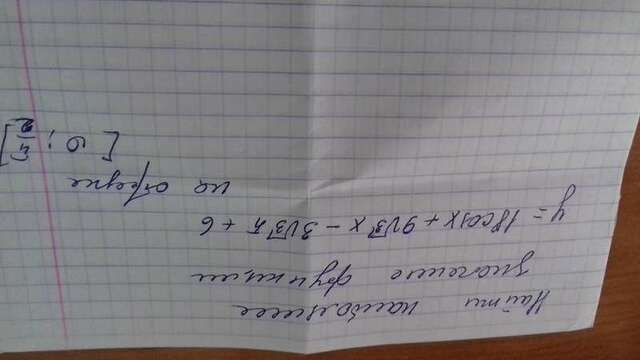 Найти наибольшее
значение функции
y = 18cosx + 9√3 x − 3√3 π + 6
на отрезке
[0; π/2]